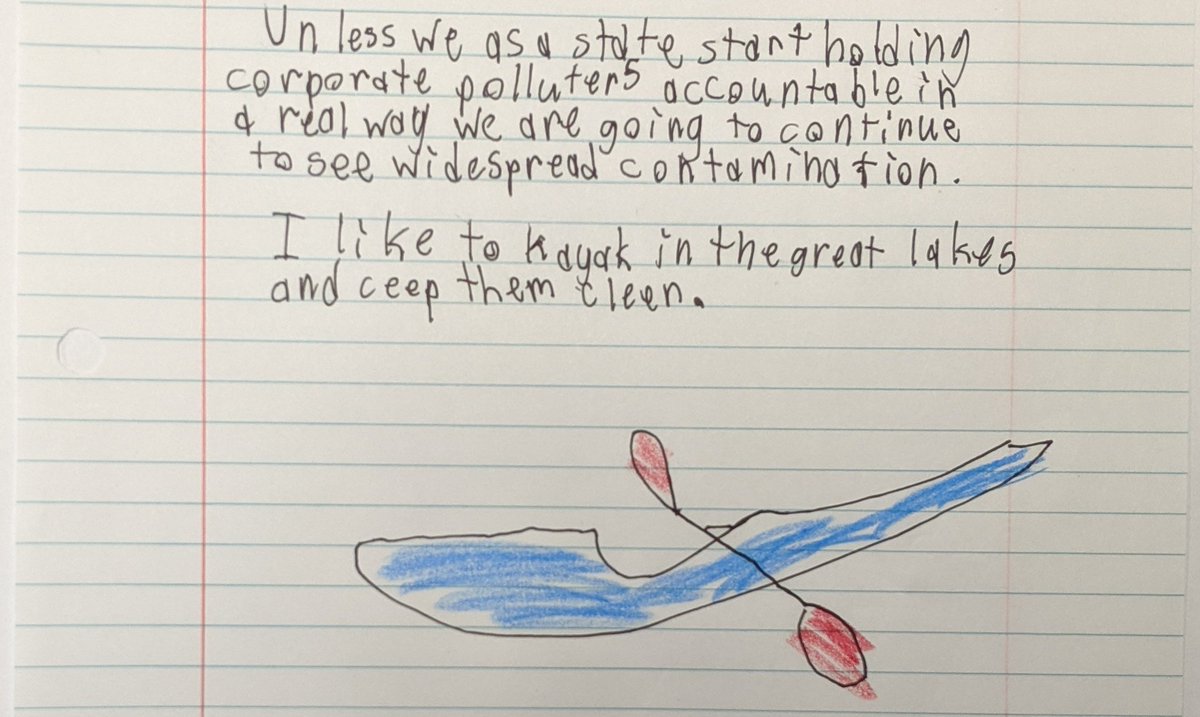 Unless we as a state start holding
corporate polluters accountable in
a real way we are going to continue
to see widespread contamination.
I like to kayak in the great lakes
and ceep them cleen.